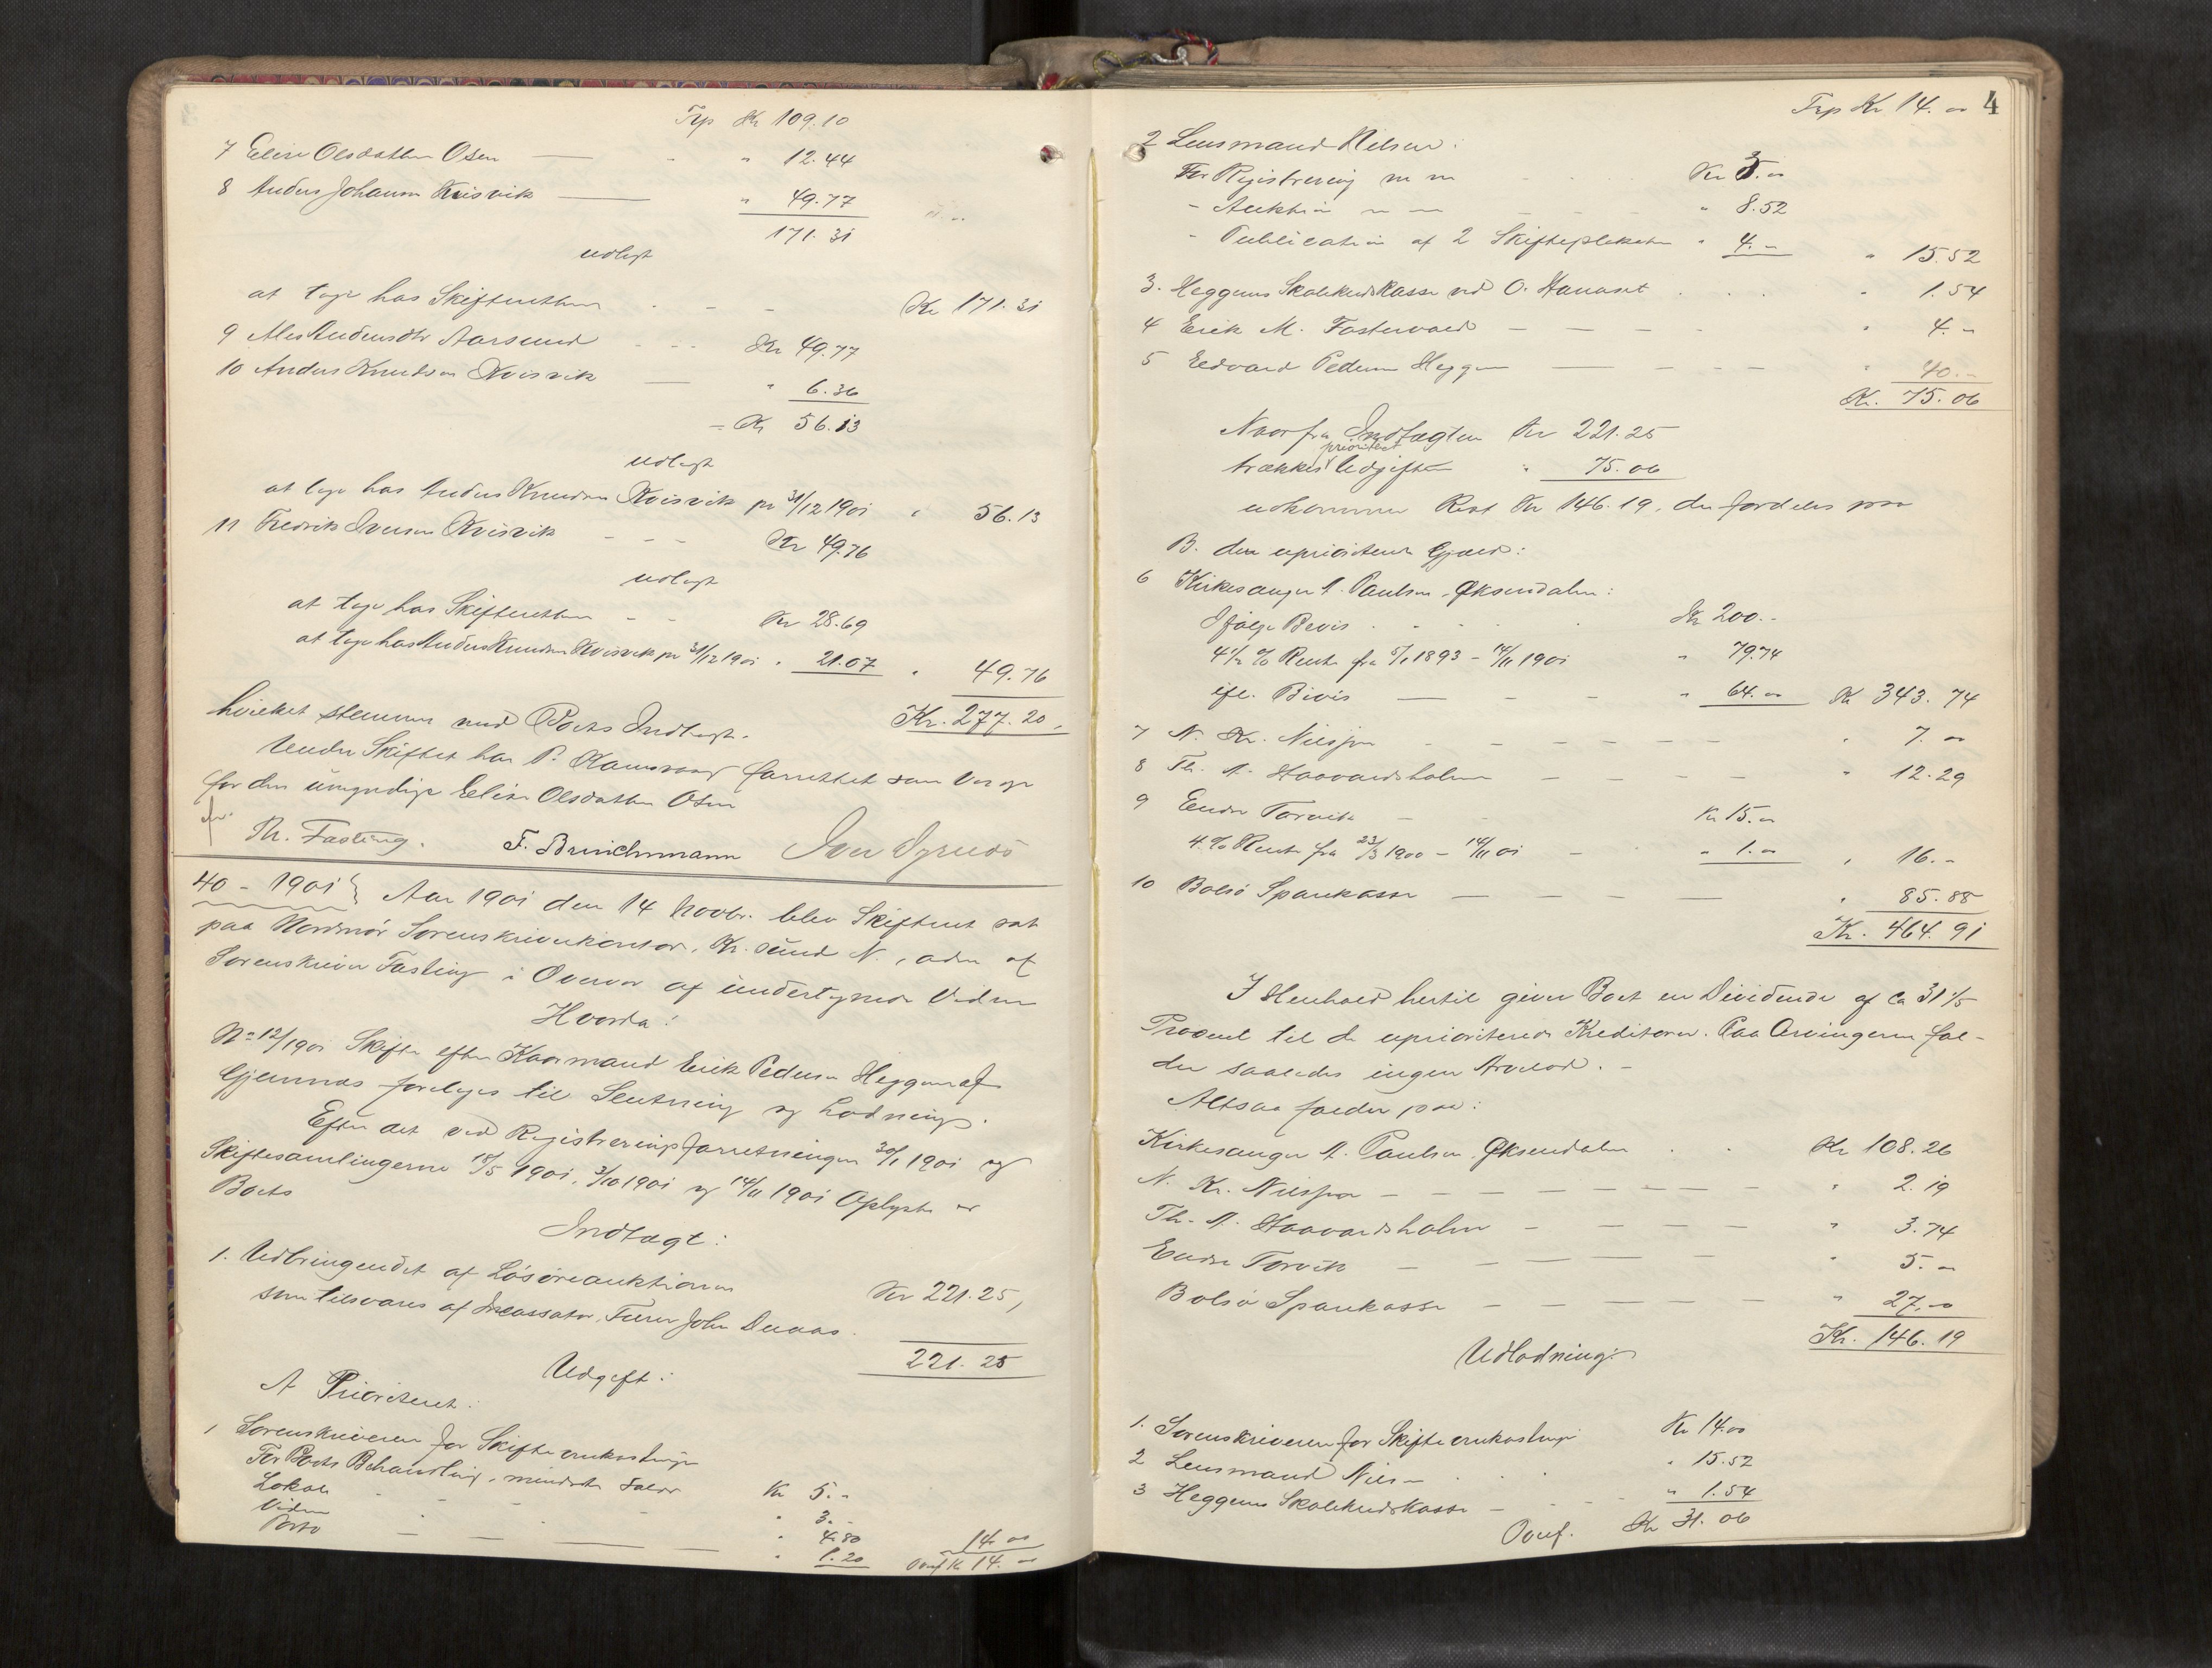 Trp Kr 109.10
7 Elise Olsdatter Osen — " " 12.44
8 Anders Johansen Kvisvik — " 49.77
171.31
udlagt
at tage hos Skifteretten - - - Kr 171.31
9 Ales Andersdtr Aarsund - - - Kr 49.77
10 Anders Knudsen Kvisvik — " 6.36
= Kr 56.13
udlagt
at tage hos Anders Knudsen Kvisvik pr 31/12 1901 " 56.13
11 Fredrik Iversen Kvisvik - - - Kr 49.76
udlagt
at tage hos Skifteretten - - Kr 28.69
at tage hos Anders Knudsen Kvisvik pr 31/12 1901 " 21.07 " 49.76
hvilket stemmer med Boets Indtægt. Kr. 277.20.
Under Skiftet har P. forrettet som Verge
for den umyndige Elise Olsdatter Osen
Th. Fasting. F. Brinchmann Iver
40 - 1901 } Aar 1901 den 14 Novbr. blev Skifteret sat
paa Nordmør Sorenskriverkontor, Kr.sund N., adm af
Sorenskriver Fasting i Overvær af undertegnede Vidner
Hvorda:
No 12/1901 Skifte efter Kaarmand Erik Pedersen Heggem af
Gjemnæs foreløges til Slutning og Lodning.
Efter det ved Registreringsforretningen 30/1 1901 og
Skiftesamlingerne 18/5 1901, 3/10 1901 og 14/11 1901 Oplyste er
Boets
Indtægt:
1. Udbringendet af Løsøreauktionen
som tilsvares af Incassator, Furer John Kr 221.25,
221.25
Udgift:
A Prioriteret:
1 Sorenskriveren for Skifteomkostninger
For Boets Behandling, mindste Salær Kr 5.-
Lokale - - - " 3.-
Vidner - - - " 4.80
Porto — — — " 1.20 14.00
Overf Kr 14.00
Trp Kr 14.00 4
2 Lensmand Nilsen:
For Registrering m m - - Kr 3.00
- Auktion m m - - - " 8.52
- Publication af 2 Skifteplakater " 4.- " 15.52
3. Heggems Skolekredskasse ved O. Hanaset . . . " 1.54
4 Erik M. Fostervold — — — - " 4.-
5 Edvard Pedersen Heggem — - - — " 40.-
Kr. 75.06
Naar fra Indtægten Kr 221.25
prioritert
trækkes Udgiften " 75.06
udkommer Rest Kr 146.19, der fordeles paa
B. den uprioriterte Gjæld:
6 Kirkesanger A. Paulsen, Øksendalen:
Ifølge Bevis . . . . Kr 200.-
4½ % Rente fra 5/1 1893 - 14/11 1901 " 79.74
ifl. Bevis — - - - " 64.00 Kr 343.74
7 N. Kr. Nilssen - — — — — — " 7.00
8 Th. A. Haavardsholm — — — — " 12.29
9 Endre Torvik — - Kr 15.00
4 % Rente fra 23/3 1900 - 14/11 01 - " 1.00 " 16.-
10 Bolsø Sparekasse — — — — " 85.88
Kr. 464.91
I Henhold hertil giver Boet en Dividende af Ca 31½
Procent til de uprioriterede Kreditorer. Paa Arvingerne fal-
der saaledes ingen Arvelod. -
Altsaa falder paa:
Kirkesanger A. Paulsen, Øksendalen . . Kr 108.26
N. Kr. Nilssen — — — — — — — " 2.19
Th. A. Haavardsholm — — — — " 3.74
Endre Torvik — — — — " 5.00
Bolsø Sparekasse — — — — — " 27.00
Kr. 146.19
Udlodning:
1. Sorenskriveren for Skifteomkostninger Kr 14.00
2 Lensmand Nilsen . . . " 15.52
3 Heggems Skolekredskasse — - - " 1.54
Overf. Kr 31.06